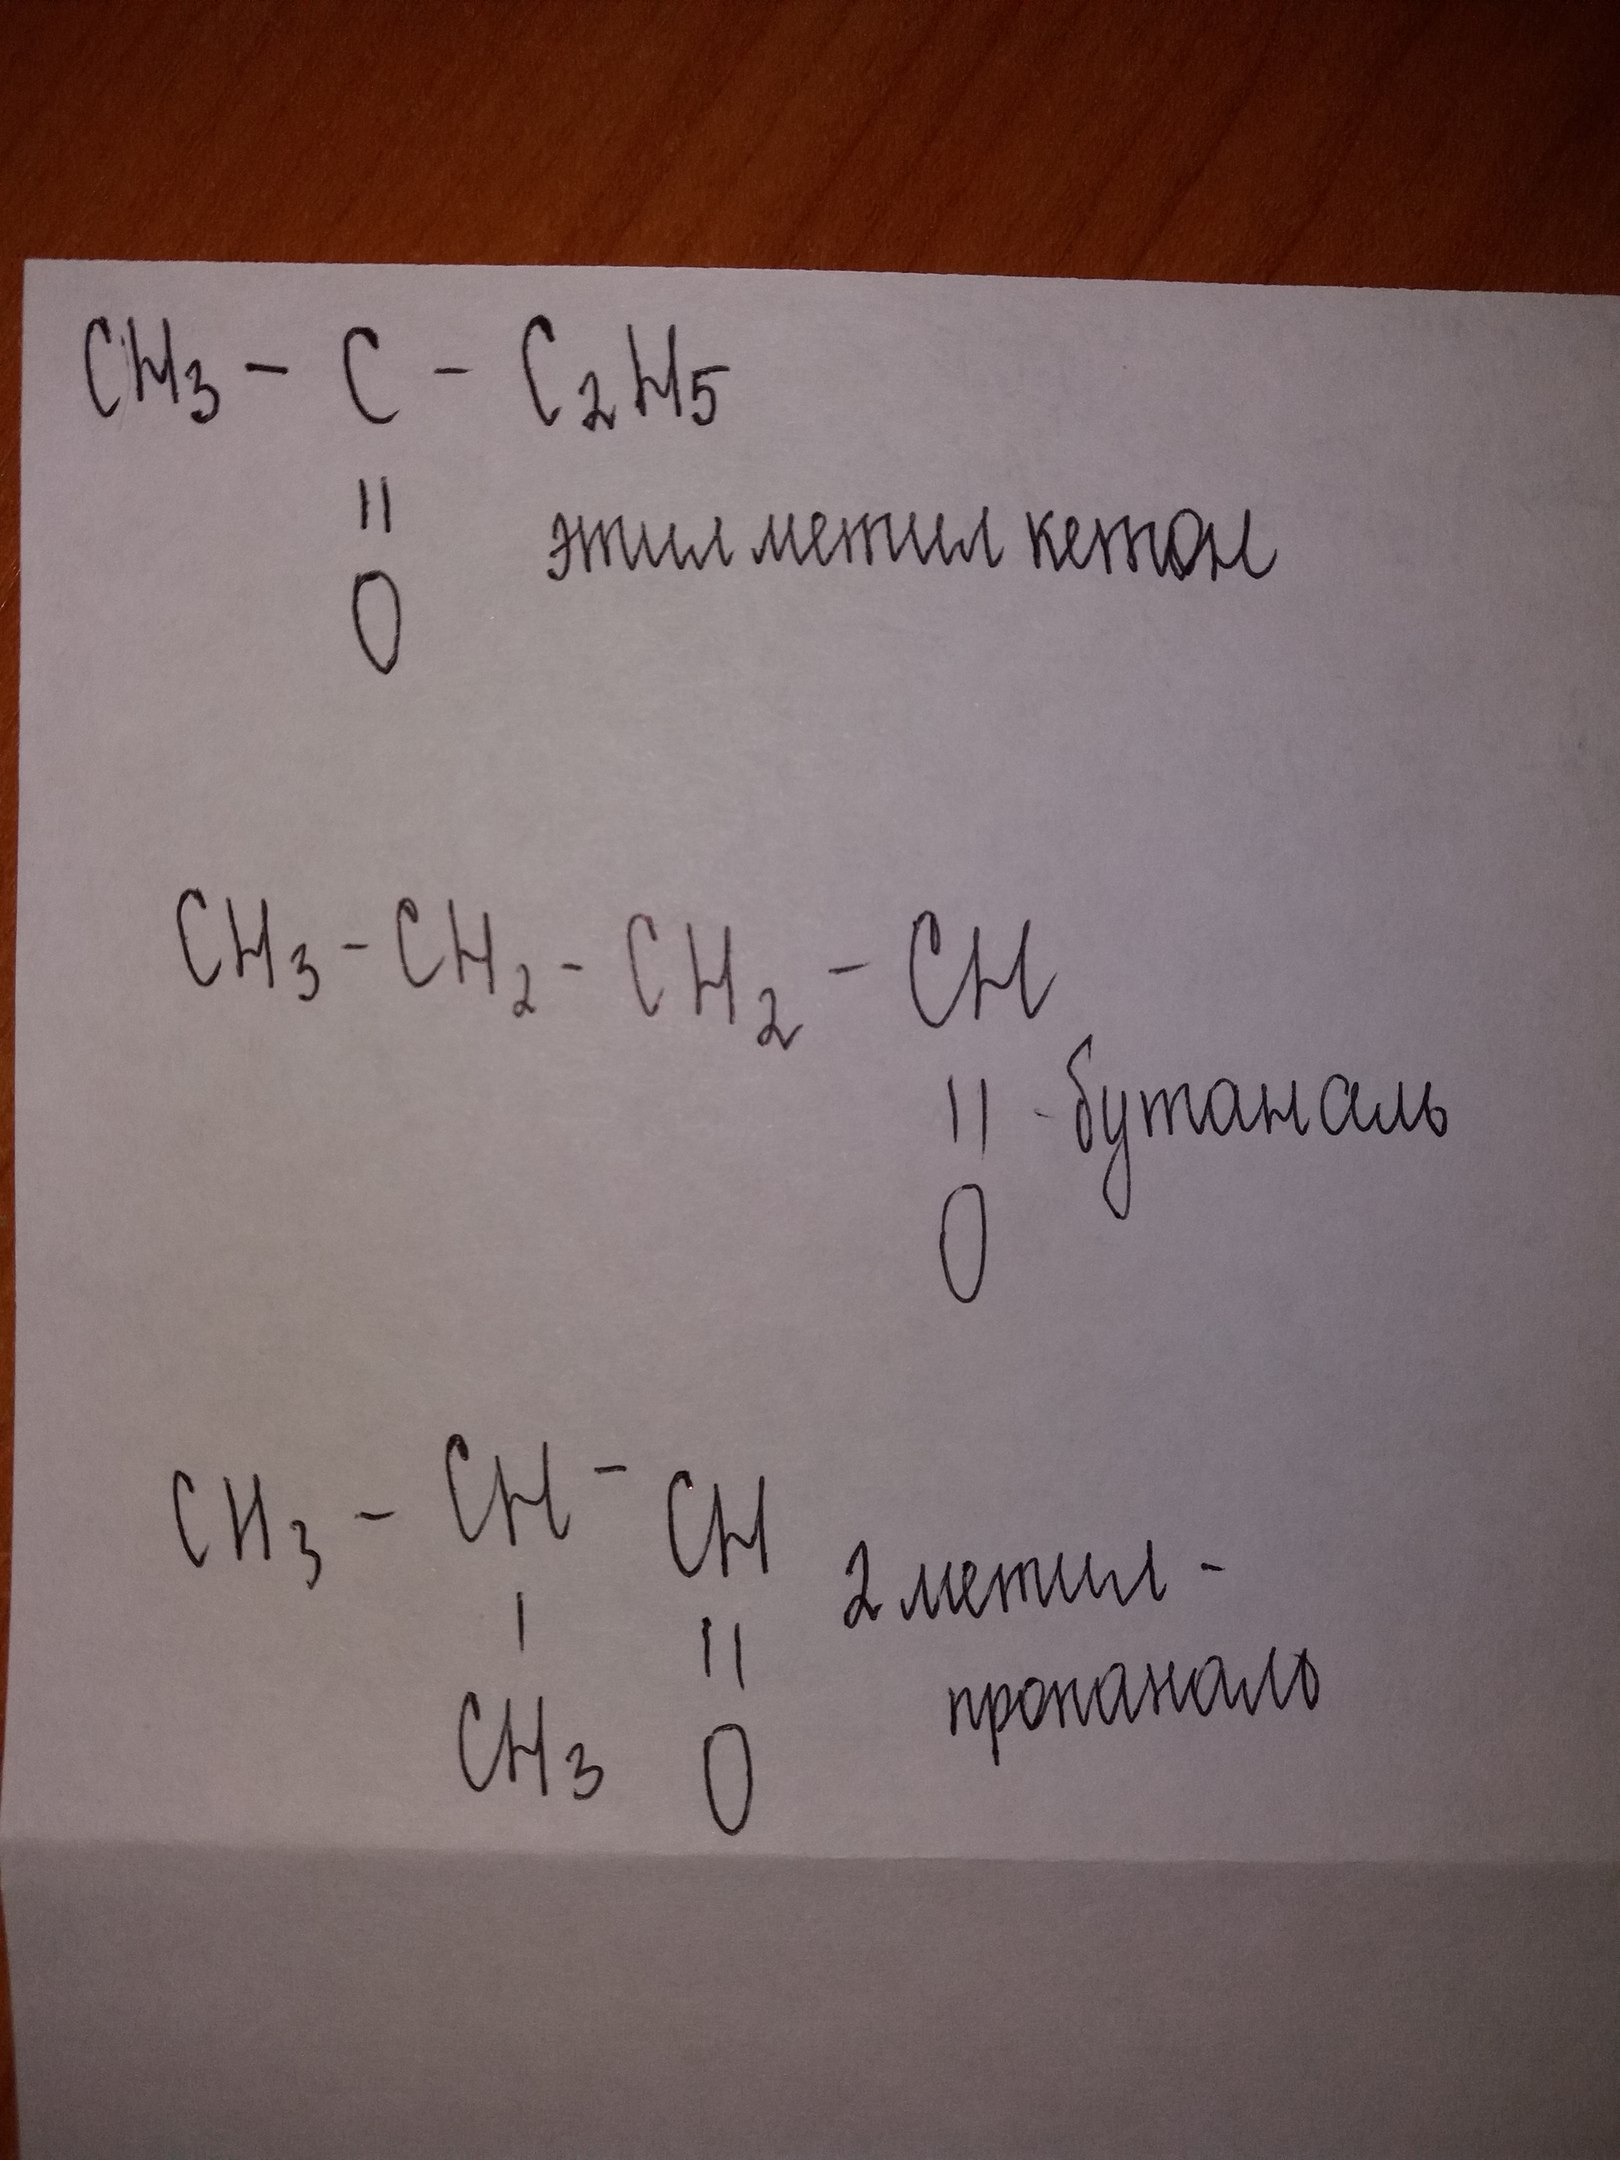 CH3 - C - C2H5
||
O
этилметилкетон
CH3 - CH2 - CH2 - CH
|| - бутаналь
O
CH3 - CH - CH
| ||
CH3 O
2метил-
пропаналь